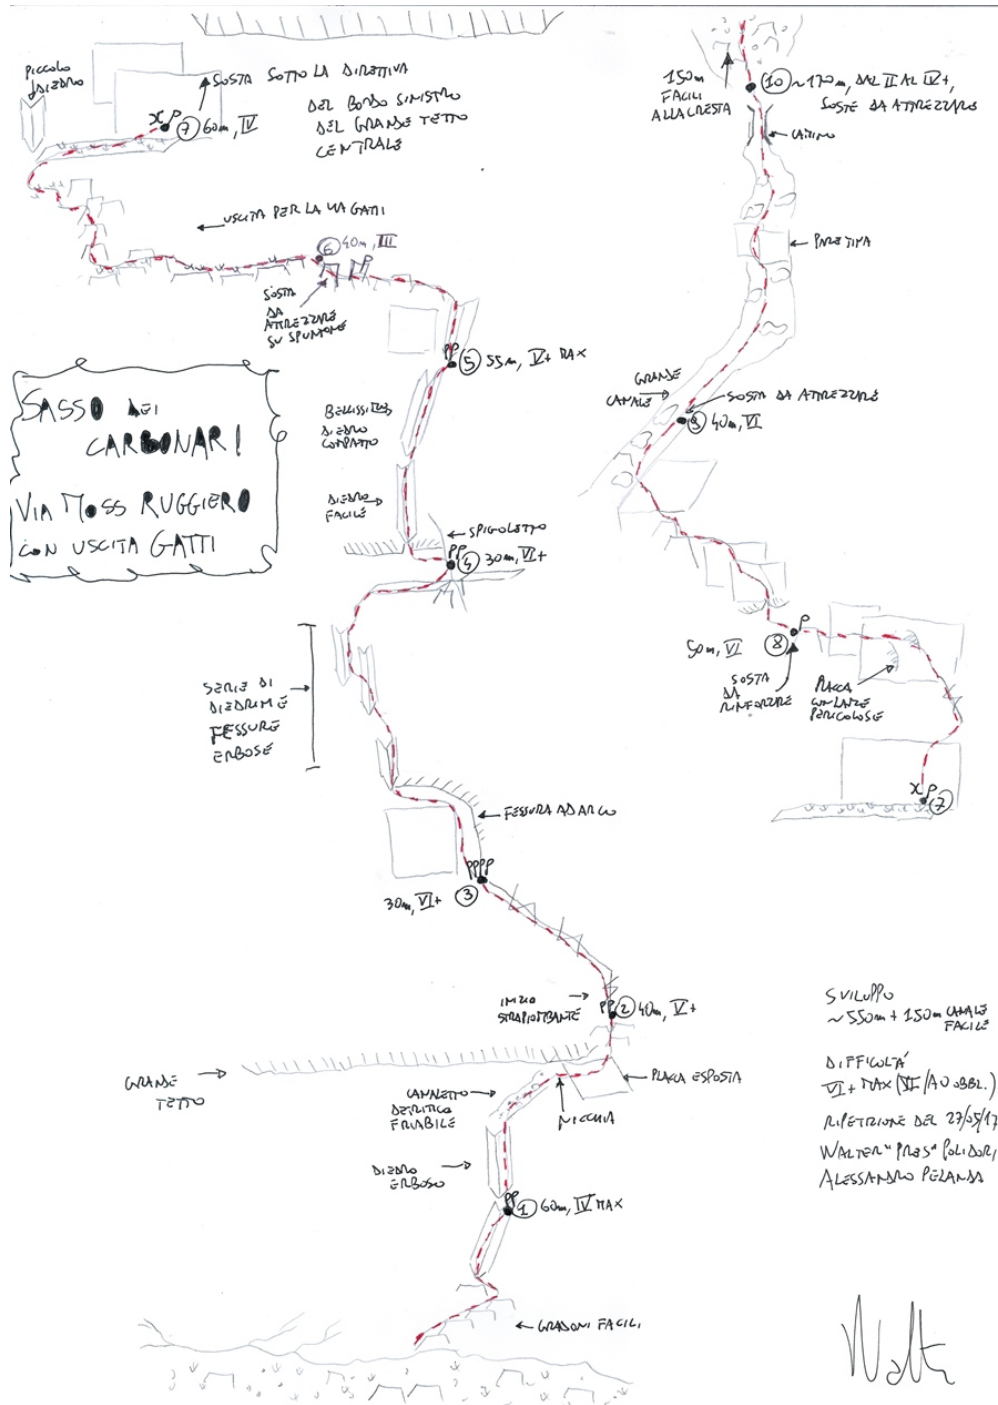 PICCOLO
DIEDRO
SOSTA SOTTO LA DIRETTIVA
DEL BORDO SINISTRO
DEL GRANDE TETTO
CENTRALE
7 60m, IV
USCITA PER LA VIA GATTI
6 40m, III
SOSTA
DA
ATTREZZARE
SU SPUNTONE
5 55m, V+ MAX
SASSO DEI
CARBONARI
VIA MOSS RUGGIERO
CON USCITA GATTI
BELLISSIMO
DIEDRO
COMPATTO
DIEDRO
FACILE
SPIGOLETTO
4 30m, VI+
SERIE DI
DIEDRINI E
FESSURE
ERBOSE
FESSURA AD ARCO
30m, VI+ 3
INIZIO
STRAPIOMBANTE
2 40m, V+
GRANDE
TETTO
CANALETTO
DETRITICO
FRIABILE
NICCHIA
PLACCA ESPOSTA
DIEDRO
ERBOSO
1 60m, IV MAX
GRADONI FACILI
150m
FACILI
ALLA CRESTA
10 ~170m, DAL II AL IV+,
SOSTE DA ATTREZZARE
CAMINO
PARETINA
GRANDE
CANALE
SOSTA DA ATTREZZARE
9 40m, VI
50m, VI 8
SOSTA
DA
RINFORZARE
PLACCA
CON LAME
PERICOLOSE
7
SVILUPPO
~550m + 150m CANALE
FACILE
DIFFICOLTÁ
VI+ MAX (VI/A0 OBBL.)
RIPETIZIONE DEL 27/05/17
WALTER "PRES" POLIDORI
ALESSANDRO PELANDA
Walter